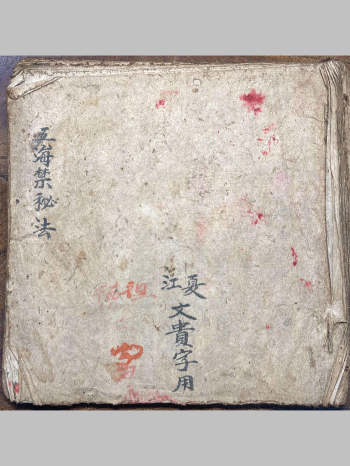 五海禁秘法
江夏
文貴字用